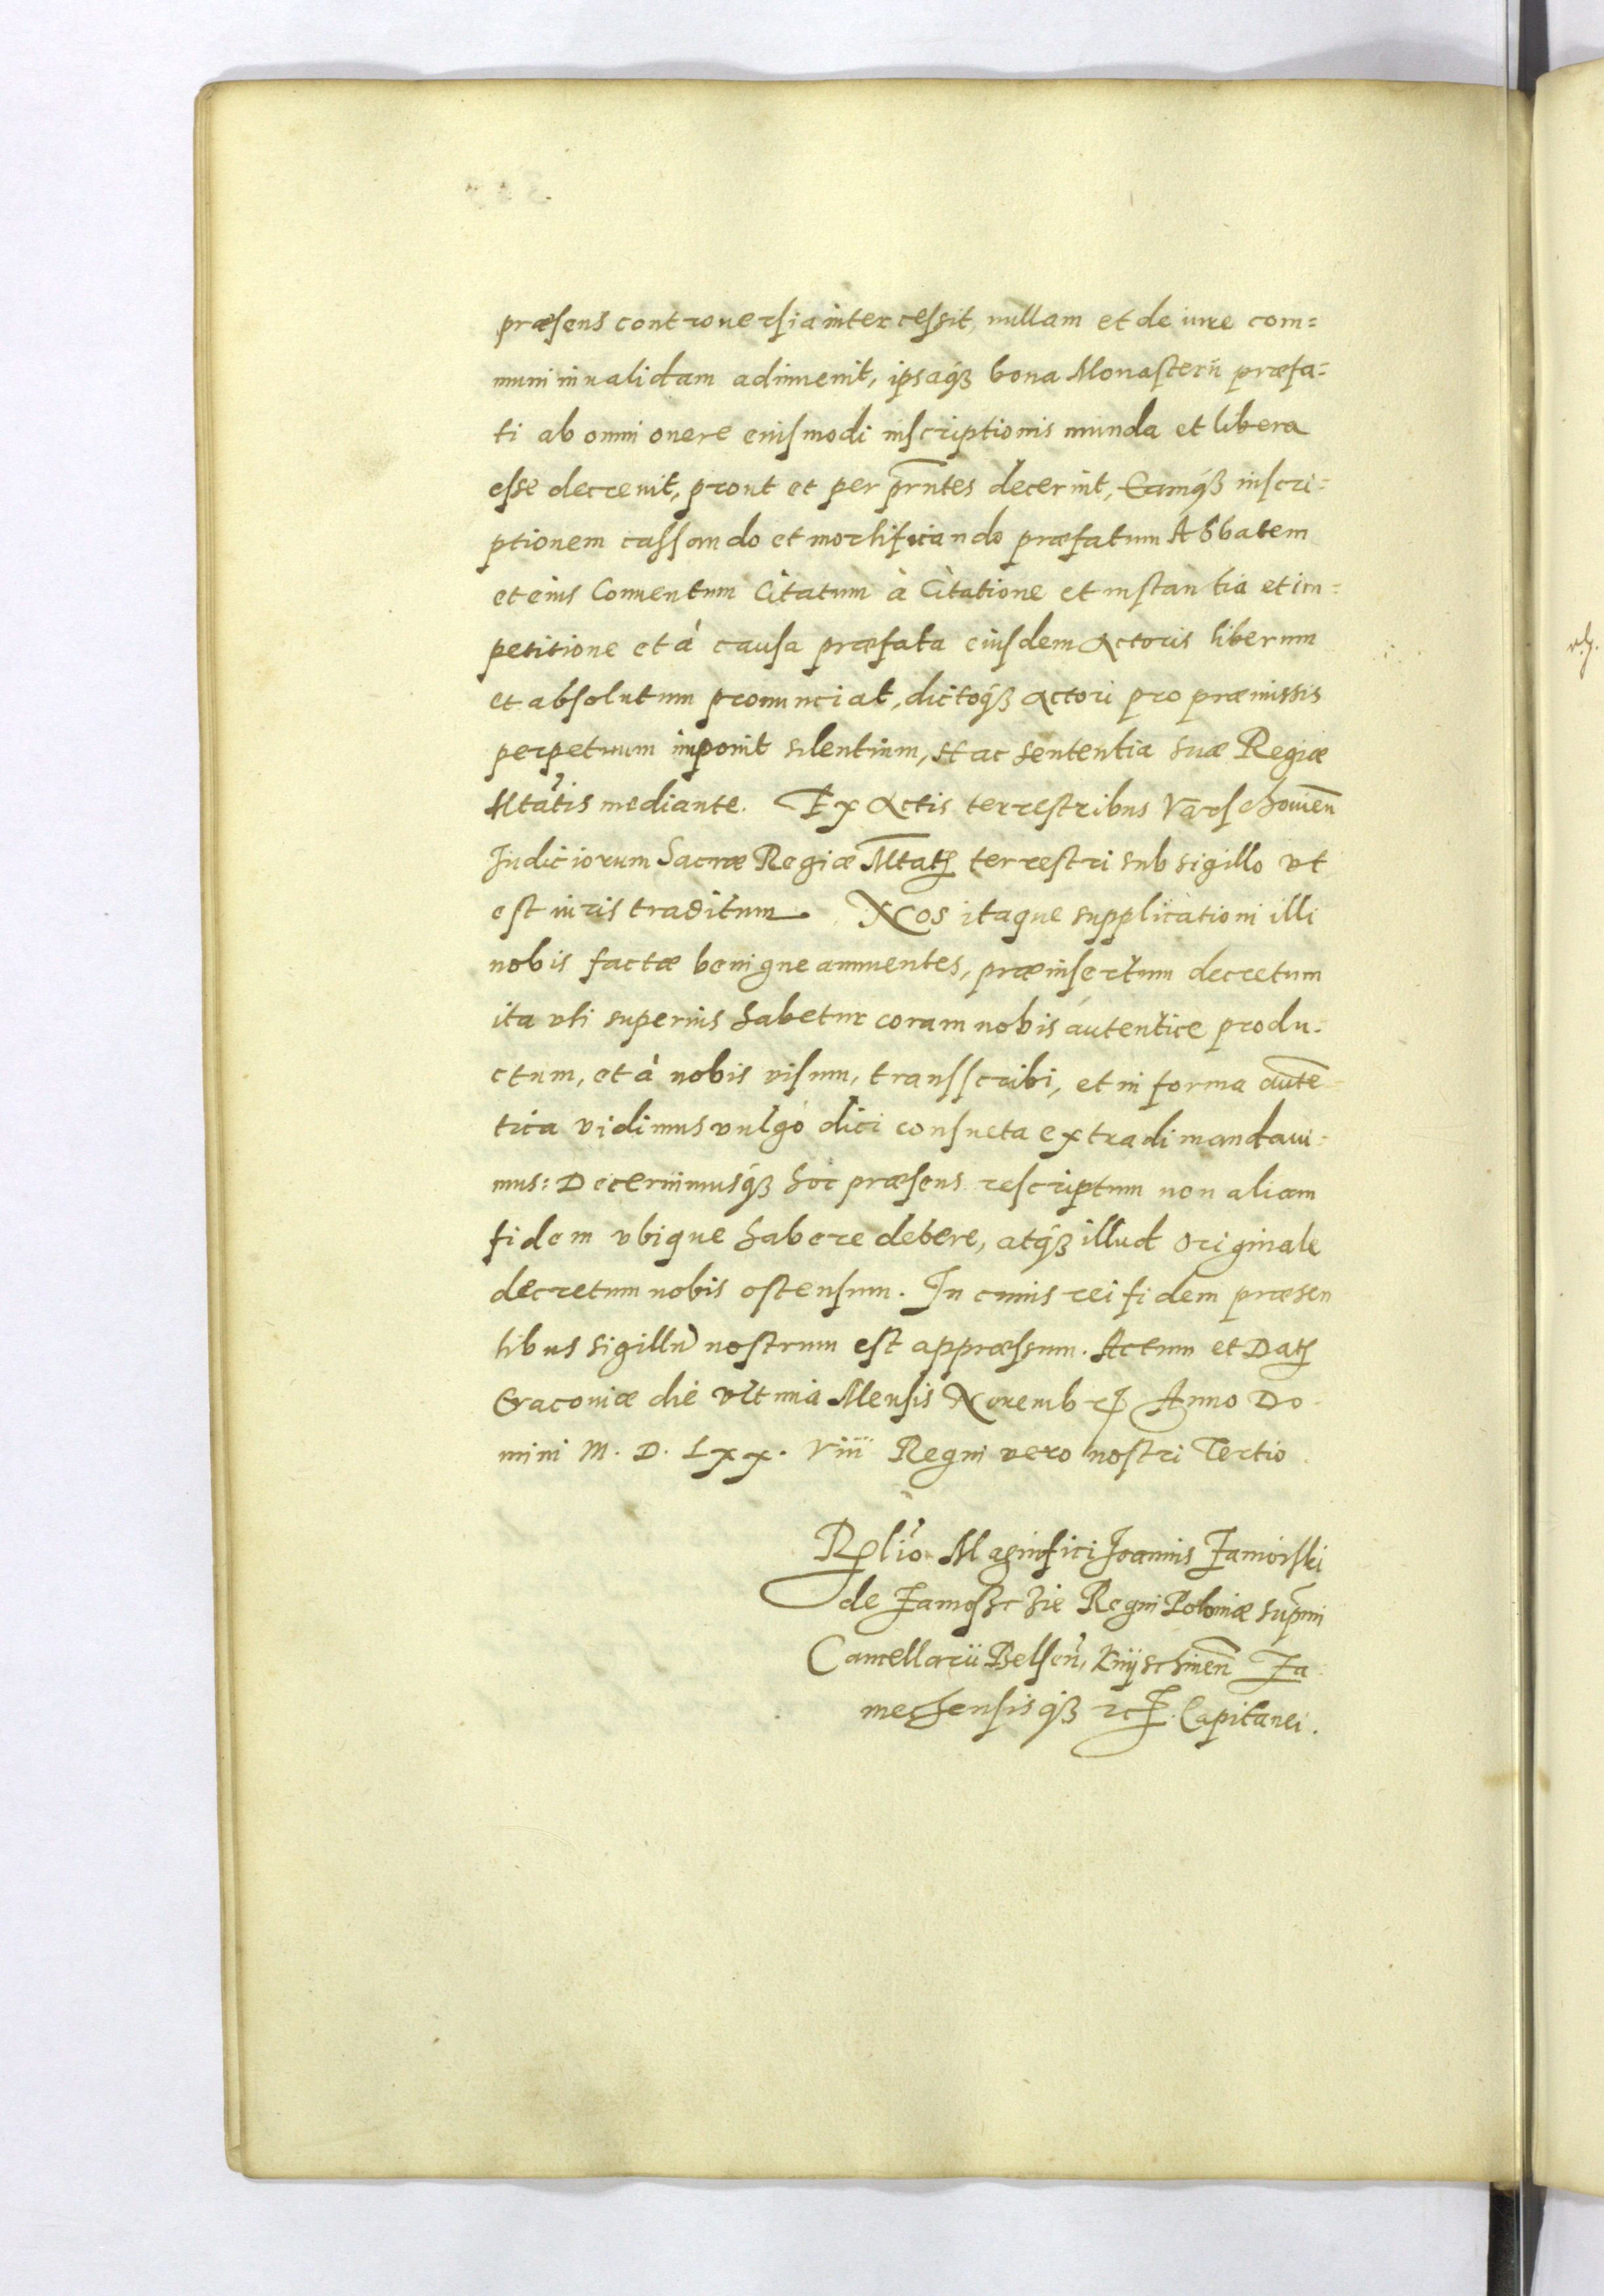 præsens controuersia intercessit, nullam et de iure com=
muni inualidam adinuenit, ipsaqꝫ bona Monasterii præfa=
ti ab omni onere eiusmodi inscriptionis munda et libera
esse decreuit, prout et per prn̄tes decernit, Eamqꝫ inscri=
ptionem cassando et mortificando præfatum Abbatem
et eius Conuentum Citatum à Citatione et instantia et im=
petitione et à causa præfata eiusdem Actoris liberum
et absolutum pronunciat, dictoqꝫ Actori pro præmissis
perpetuum imponit silentium, Hac sententia suæ Regiæ
Mtātis mediante. Ex Actis terrestribus Varschouieñ
Iudiciorum Sacræ Regiæ Mtatꝭ terrestri sub sigillo vt
est iuris traditum. Nos itaque supplicationi illi
nobis factæ benigne annuentes, præinsertum decretum
ita vti superius habetur coram nobis autentice produ=
ctum, et à nobis visum, transscribi, et in forma auten̄=
tica vidimus vulgò dici consueta extradi mandaui=
mus: Decernimusqꝫ hoc præsens rescriptum non aliam
fidem vbique habere debere, atqꝫ illud Originale
decretum nobis ostensum. In cuius rei fidem præsen
tibus sigillū nostrum est appræssum. Actum et Datꝭ
Cracouiæ die vltima Mensis Nouembrꝭ Anno Do=
mini M. D. Lxx. Viii Regni vero nostri Tertio.
Rel̄io Magnifici Ioannis Zamoiski
de Zamosczie Regni Poloniæ Sup̄mi
Cancellarii Belseñ, Knyschineñ Za
mechensisqꝫ ꝛcꝭ. Capitanei.